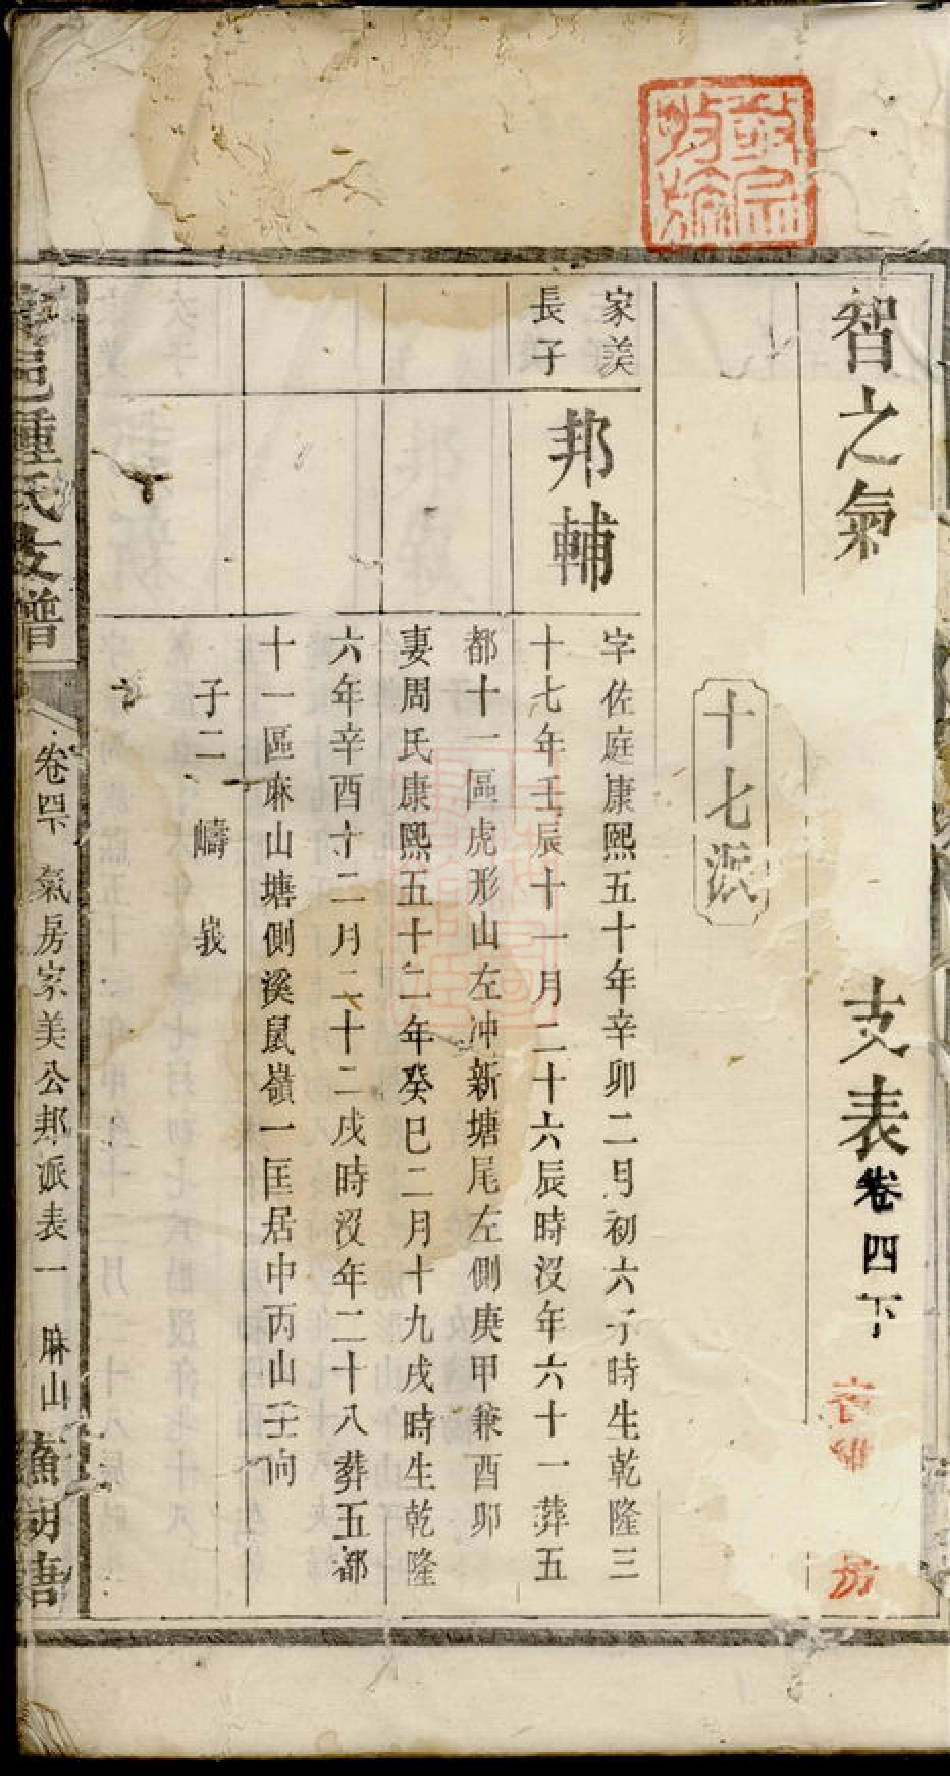 智之氣
支表卷四下
房
十七派
家美
長子
邦輔
字佐庭康熙五十年辛卯二月初六子時生乾隆三
十七年壬辰十一月二十六辰時沒年六十一葬五
都十一區虎形山左冲新塘尾左側庚甲兼酉卯
妻周氏康熙五十二年癸巳二月十九戌時生乾隆
六年辛酉十二月二十二戌時沒年二十八葬五都
十一區麻山塘側溪鼠嶺一匡居中丙山壬向
子二 疇 峩
邑鍾氏支譜
卷四下 氣房家美公邦派表一 麻山